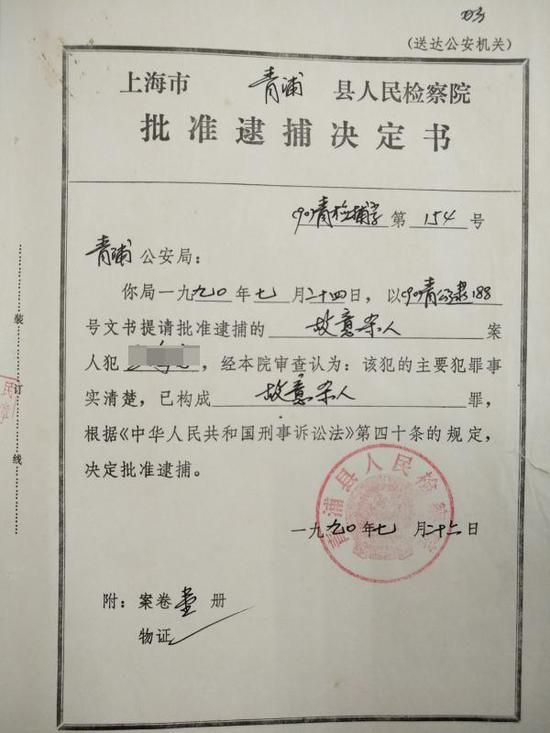 (送达公安机关)
上海市 青浦 县人民检察院
批准逮捕决定书
(90)青检捕字 第 154 号
青浦 公安局：
你局一九九0年七月二十四日，以(90)青公隶188
号文书提请批准逮捕的 故意杀人 案
人犯，经本院审查认为：该犯的主要犯罪事
实清楚，已构成 故意杀人 罪，
根据《中华人民共和国刑事诉讼法》第四十条的规定，
决定批准逮捕。
青浦县人民检察院
一九九0年七月二十六日
附：案卷壹册
物证
装
订
线